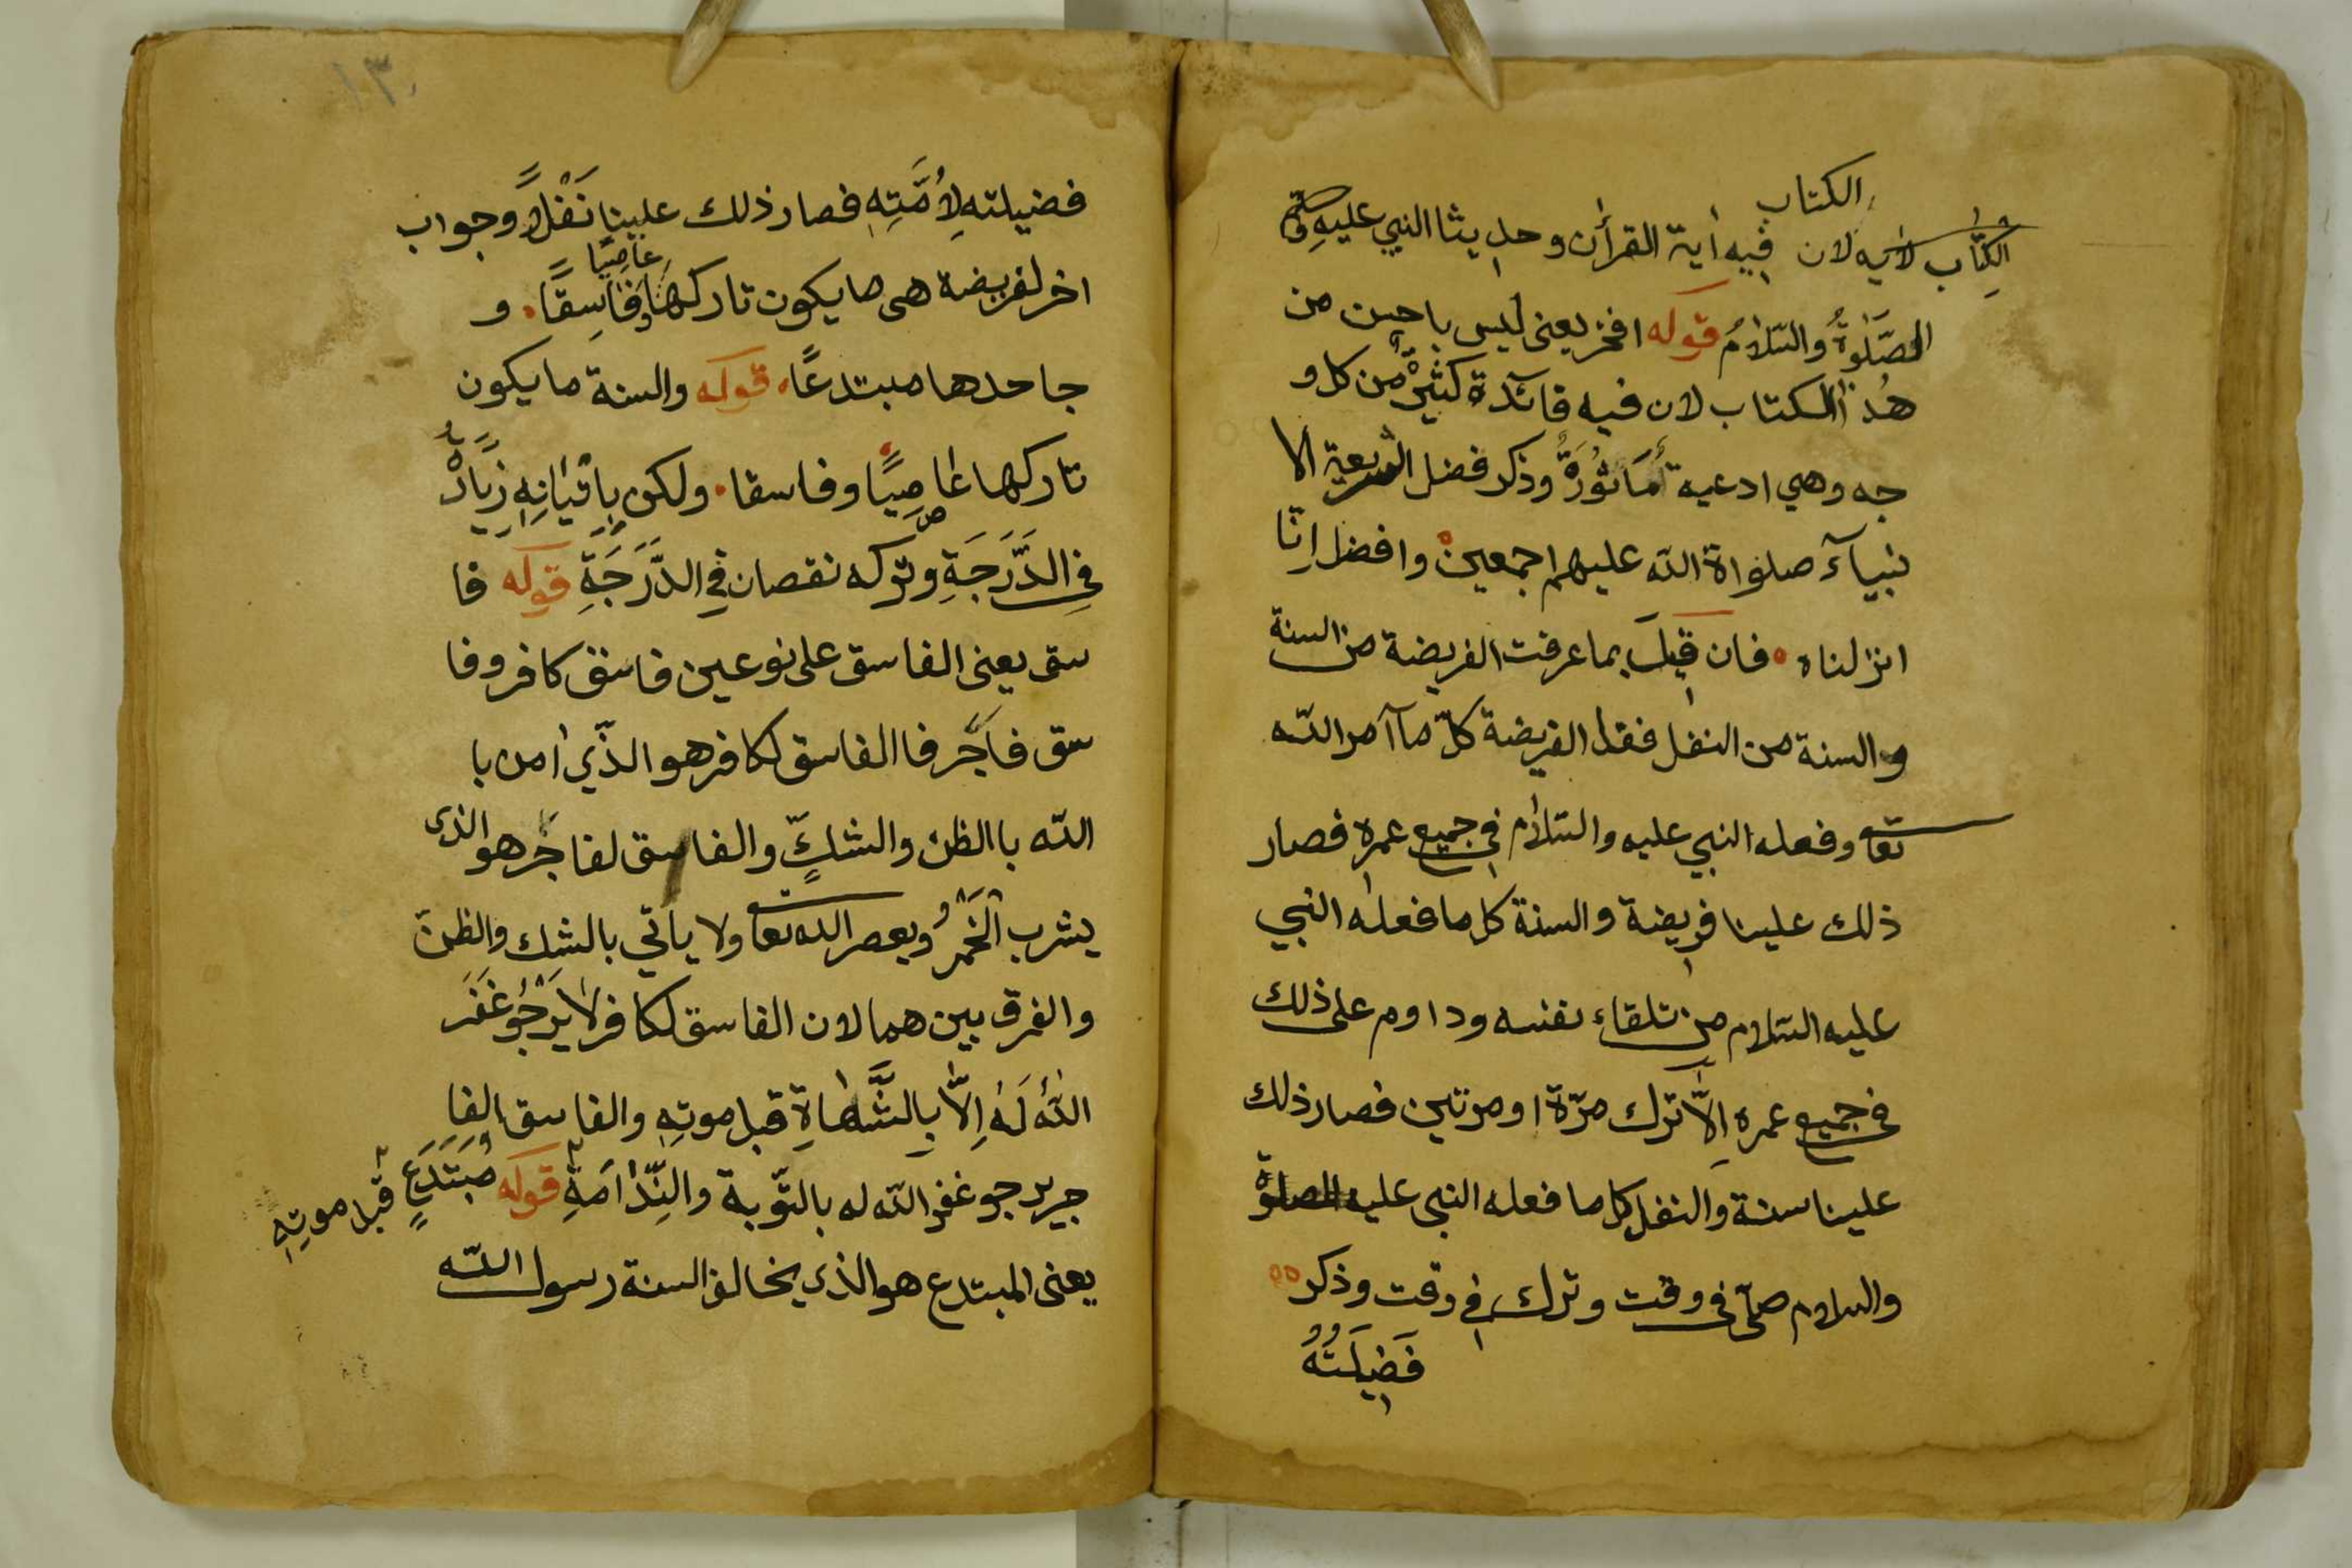 الكتاب
الكتاب لان فيه اية القرأن وحديثا النبي عليه
الصَّلٰوةُ والسّلامُ قوله افخر يعنى ليس باحسن من
هٰذا الكتاب لان فيه فائدة كثيرٌ من كل و
جه وهي ادعية مَاثُوْرَةٌ وذكر فضل الشريعة الا
نبيآء صلواة الله عليهم اجمعين وافضل اِنّا
انزلناه فان قِيلَ بما عرفت الفريضة من السنة
والسنة من النفل فقل الفريضة كلّ مآ آمر اللّه
تعا وفعله النبي عليه والسّلام في جميع عمره فصار
ذلك علينا فريضة والسنة كل ما فعله النبي
عليه السّلام من تلقاء نفسه وداوم على ذلك
في جميع عمره اِلّا ترك مرّة او مرتين فصار ذلك
علينا سنة والنفل كل ما فعله النبى عليه الصلوة
والسلام صلّى في وقت وترك في وقت وذكر
فَضِيلَتُهُ
١٣٠
فضيلته لِاُمَّتِهٖ فصار ذلك علينا نَفْلاً وجواب
اخر لفريضة هى ما يكون تاركها عاصِيًا وفَاسِقًا و
جاحدها مبتدعًا قوله والسنة ما يكون
تاركها عاصِيًا وفاسقا ولكن بِاِتْيَانِهٖ زِيَادَةٌ
فِي الدَّرَجَةِ وتركه نقصان فِي الدَّرَجَةِ قوله فا
سق يعنى الفاسق على نوعين فاسق كافر وفا
سق فاجر فا الفاسق لكافر هو الذّي اٰمن با
اللّه باالظن والشكِّ والفاسق لفاجر هو الذى
يشرب الْخَمْرُ ويعصر الله تعا ولا يأتي بالشك والظنّ
والفرق بين هما لان الفاسق لكافر لا يَرْجُوْ غَفَرَ
اللّٰهُ لَهٗ اِلاّ بِالشَّهَاةِ قبل موتِهٖ والفاسق الفا
جر يرجو غفر اللّه له بالتّوبة والنِّدَامَةِ قوله مُبْتَدَعٍ قبل موتِهٖ
يعنى المبتدع هو الذى يخالف السنة رسول اللّه